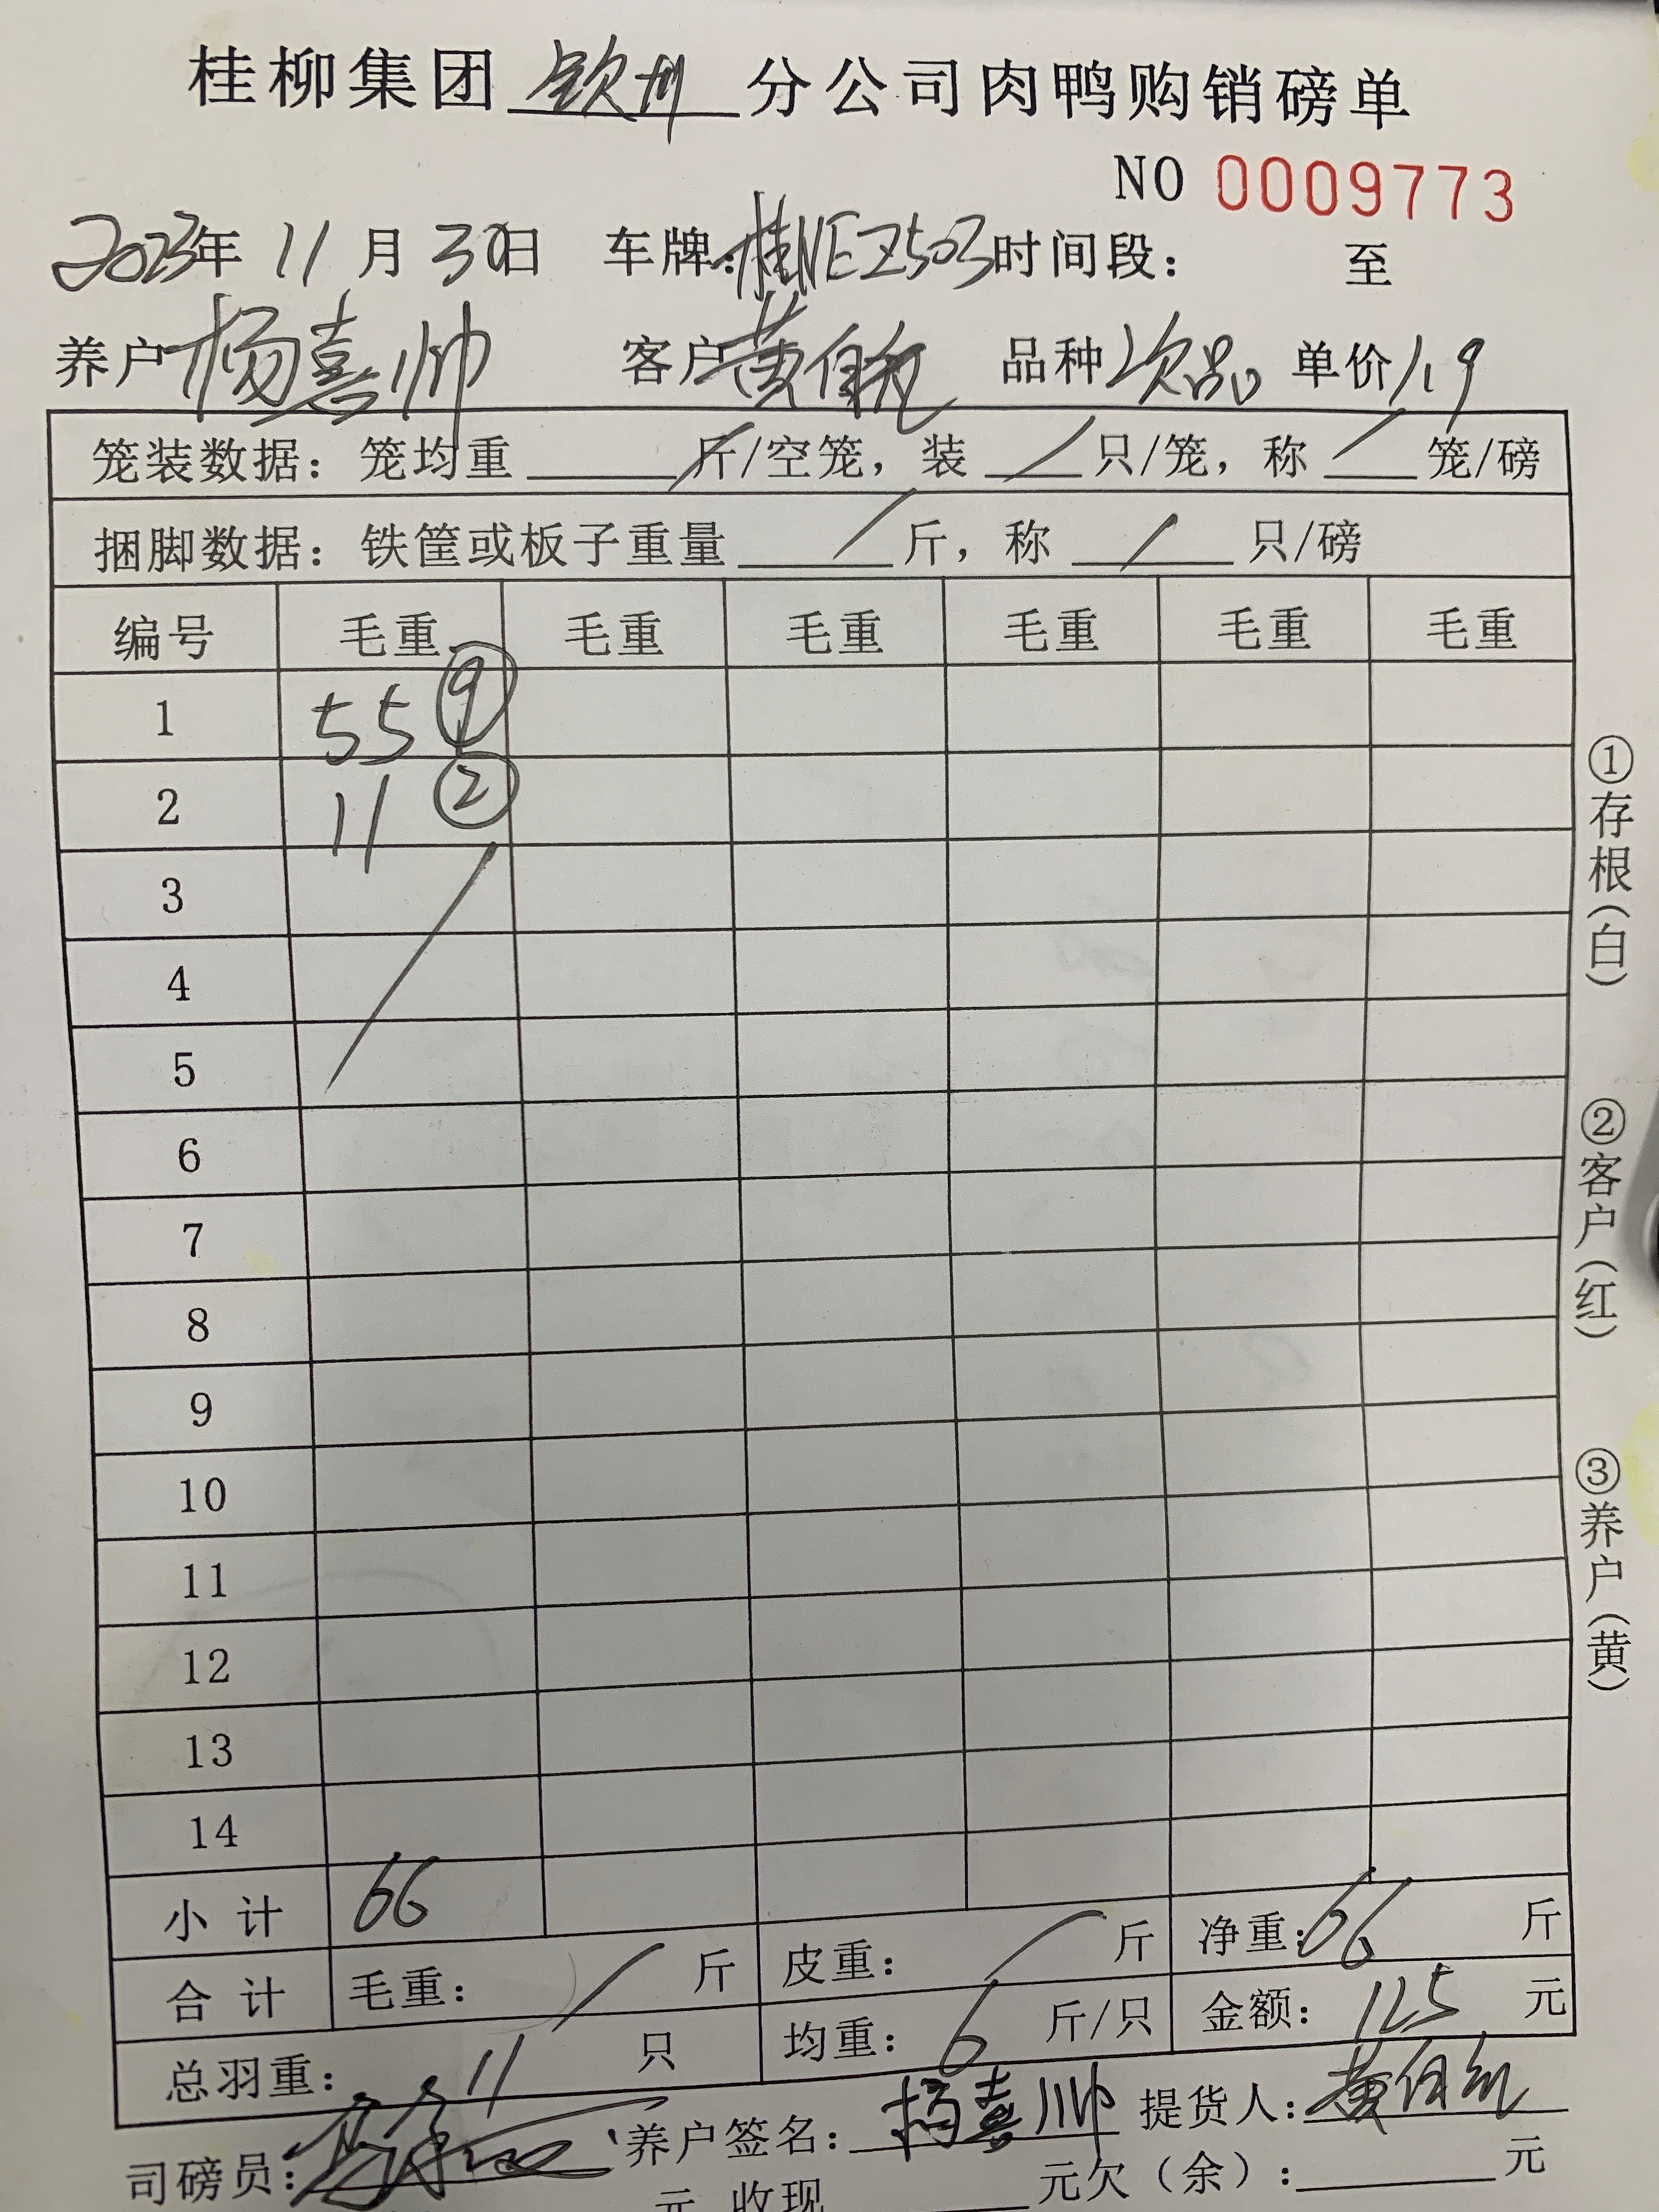 桂柳集团 钦州 分公司肉鸭购销磅单
NO 0009773
2023年 11 月 30日 车牌:桂NEZ503 时间段: 至
养户 杨喜帅 客户 黄自 品种 次品 单价 1.9
笼装数据: 笼均重 / 斤/空笼, 装 / 只/笼, 称 / 笼/磅
捆脚数据: 铁筐或板子重量 / 斤, 称 / 只/磅
编号 毛重 毛重 毛重 毛重 毛重 毛重
1 55 ⑨
2 11 ②
3
4
5
6
7
8
9
10
11
12
13
14
小计 66
合计 毛重: / 斤 皮重: / 斤 净重: 66 斤
总羽重: 11 只 均重: 6 斤/只 金额: 125 元
司磅员: 养户签名: 杨喜帅 提货人: 黄自
元 收现 元欠(余): 元
①存根(白)
②客户(红)
③养户(黄)